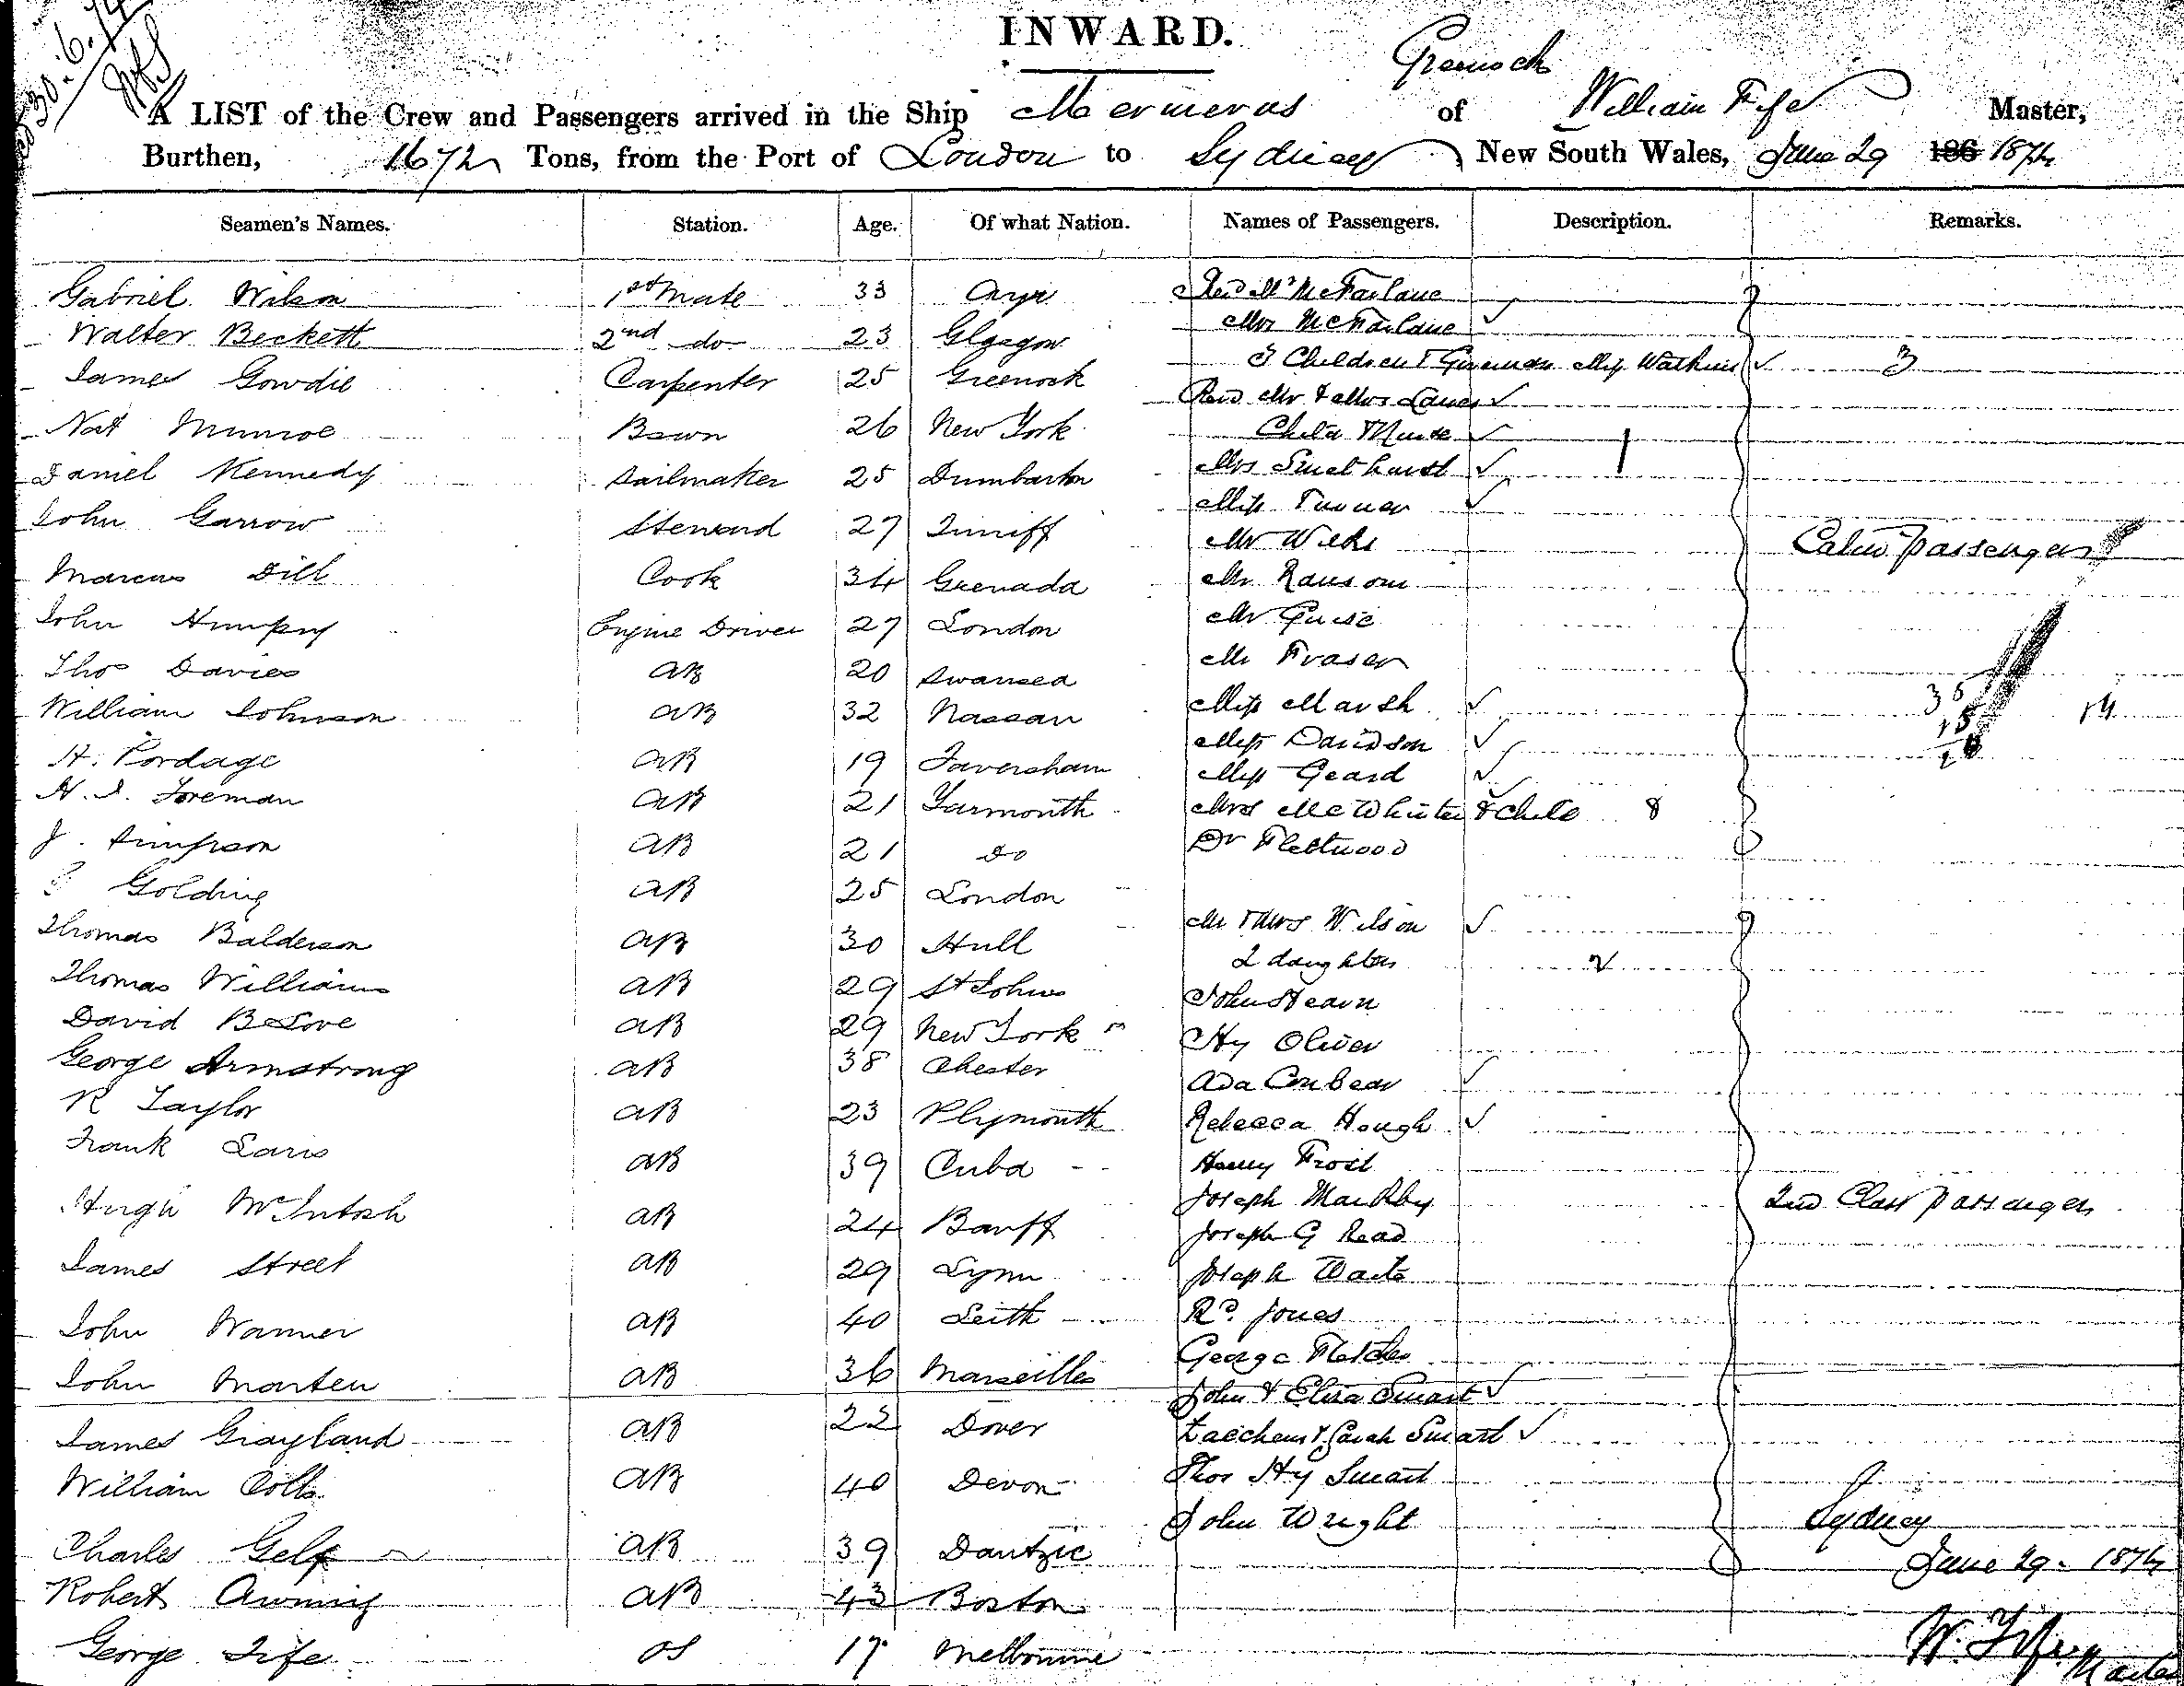 30.6.74
INWARD.
Greenock
A LIST of the Crew and Passengers arrived in the Ship Mermerus of William Fife Master,
Burthen, 1672 Tons, from the Port of London to Sydney, New South Wales, June 29 186 1874
Seamen's Names. Station. Age. Of what Nation. Names of Passengers. Description. Remarks.
Gabriel Wilson 1st Mate 33 Ayr Revd Mr McFarlane
Walter Beckett 2nd do 23 Glasgow Mrs McFarlane
James Gowdie Carpenter 25 Greenock 3 Children & Miss Watkins 3
Revd Mr & Mrs Lawes
Nat Munroe Bosun 26 New York Child & Nurse 1
Daniel Kennedy Sailmaker 25 Dumbarton Mrs Smethurst
John Garrow Steward 27 Miss Turner
Mr Wilks Cabin passengers
Marcus Dill Cook 34 Grenada Mr Ransom
John Engine Driver 27 London Mr Guise
Thos Davies AB 20 Swansea Mr Fraser
William Johnson AB 32 Nassau Miss Marsh 14
H. Pordage AB 19 Faversham Miss Davidson
H. I. Foreman AB 21 Yarmouth Miss Geard
J. Simpson AB 21 Do Mrs McWhirter & Child
Dr Fleetwood
Golding AB 25 London
Thomas Balderson AB 30 Hull Mr & Mrs Wilson
Thomas Williams AB 29 St Johns 2 daughters 2
David AB 29 New York John Hearn
George Armstrong AB 38 Chester Hy Oliver
R Taylor AB 23 Plymouth Ada Conbear
Frank AB 39 Cuba Rebecca Hough
Henry Frost
Hugh McIntosh AB 24 Banff Joseph 2nd Class passengers
Joseph G Read
James Street AB 29 Lynn Joseph Waite
John Warner AB 40 Leith Rd Jones
John Marten AB 36 Marseilles George Fletcher
John & Eliza Smart
James Grayland AB 22 Dover & Sarah Smart
William Cotts AB 40 Devon Thos Hy Smart
John Wright Sydney
Charles Gelf AB 39 Dantzic June 29. 1874
Robert AB 43 Boston
George Fife OS 17 Melbourne W. Fife Master